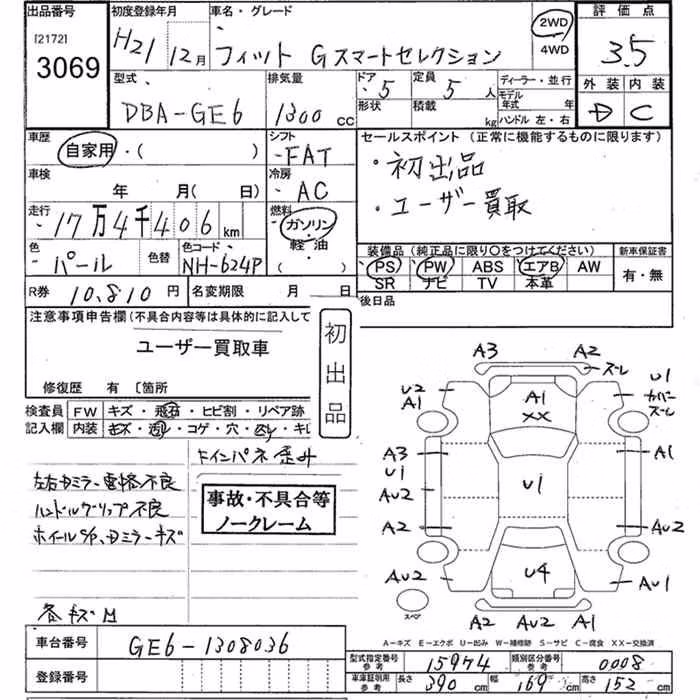 出品番号 初度登録年月 車名・グレード 評価点
[2172]
3069
H21 12月
フィット Gスマートセレクション
2WD
4WD
3.5
型式 排気量 ドア 定員 ディーラー・並行 外装 内装
DBA-GE6 1300cc 5 5人
モデル年式 年
形状 積載 kg ハンドル 左・右
D C
車歴 シフト セールスポイント（正常に機能するものに限ります）
自家用・（ ） FAT
・初出品
車検 冷房
年 月（日） AC
・ユーザー買取
走行 燃料
17万4千406km ガソリン・軽油（ ）
色 色替 色コード 装備品（純正品に限り○をつけてください） 新車保証書
パール NH-624P
PS PW ABS エアB AW 有・無
SR ナビ TV 本革
R券 10,810円 名変期限 月 日 後日品
注意事項申告欄（不具合内容等は具体的に記入して
ユーザー買取車
初出品
修復歴 有〔箇所
検査員 FW キズ・飛石・ヒビ割・リペア跡
記入欄 内装 キズ・汚レ・コゲ・穴・
A3 A2 ズレ
U2 A1 A1 XX U1 カバーズレ
A3 U1 AU2 U1 A1
A2 AU2
AU2 U4 AU1
スペア
A2 AU2 A1
インパネ歪み
左右ミラー電格不良
ハンドルグリップ不良
事故・不具合等
ノークレーム
各キズM
A-キズ E-エクボ U-凹み W-補修跡 S-サビ C-腐食 XX-交換済
車台番号 GE6-1308036
登録番号
型式指定番号 参考 15974 類別区分番号 参考 0008
車庫証明用 参考 長さ 390cm 幅 169cm 高さ 152cm